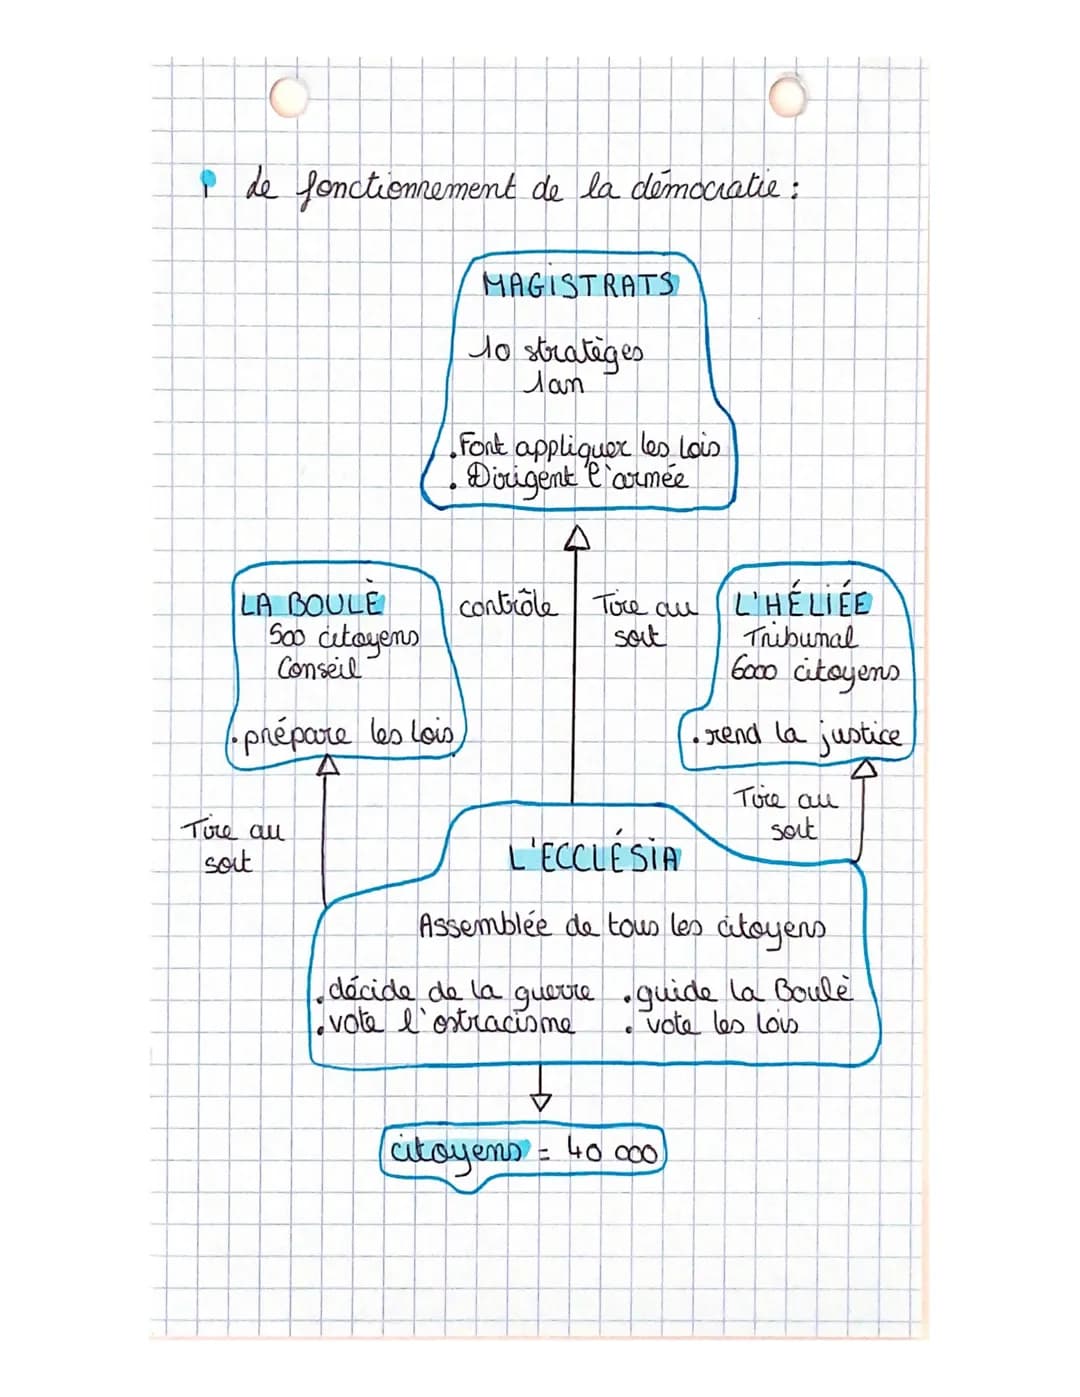 de fonctionnement de la démocratie :
MAGISTRATS
10 stratèges
1an
. Font appliquer les lois
. Dirigent l'armée
LA BOULÈ
500 citoyens
Conseil
. prépare les lois
contrôle
Tire au
sort
L'HÉLIÉE
Tribunal
6000 citoyens
. rend la justice
Tire au
sort
Tire au
sort
L'ECCLÉSIA
Assemblée de tous les citoyens
. décide de la guerre . guide la Boulè
. vote l'ostracisme . vote les lois
citoyens = 40 000